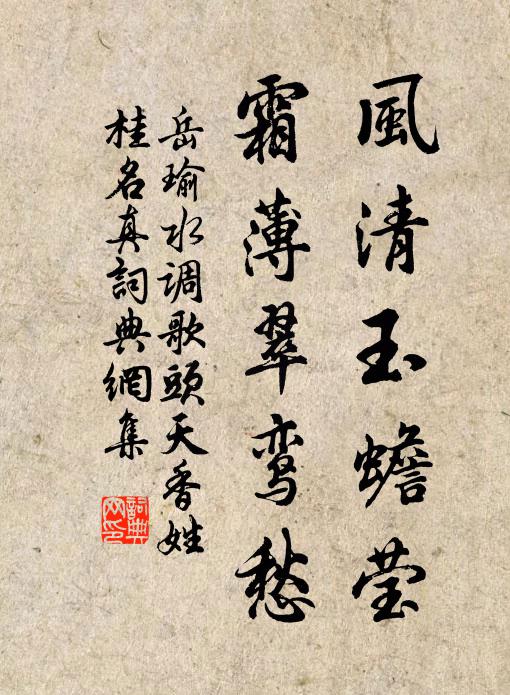 風清玉蟾莹
霜薄翠鸾愁
岳瑜水調歌頭天香姓
桂名真詞典網集
詞典
网印